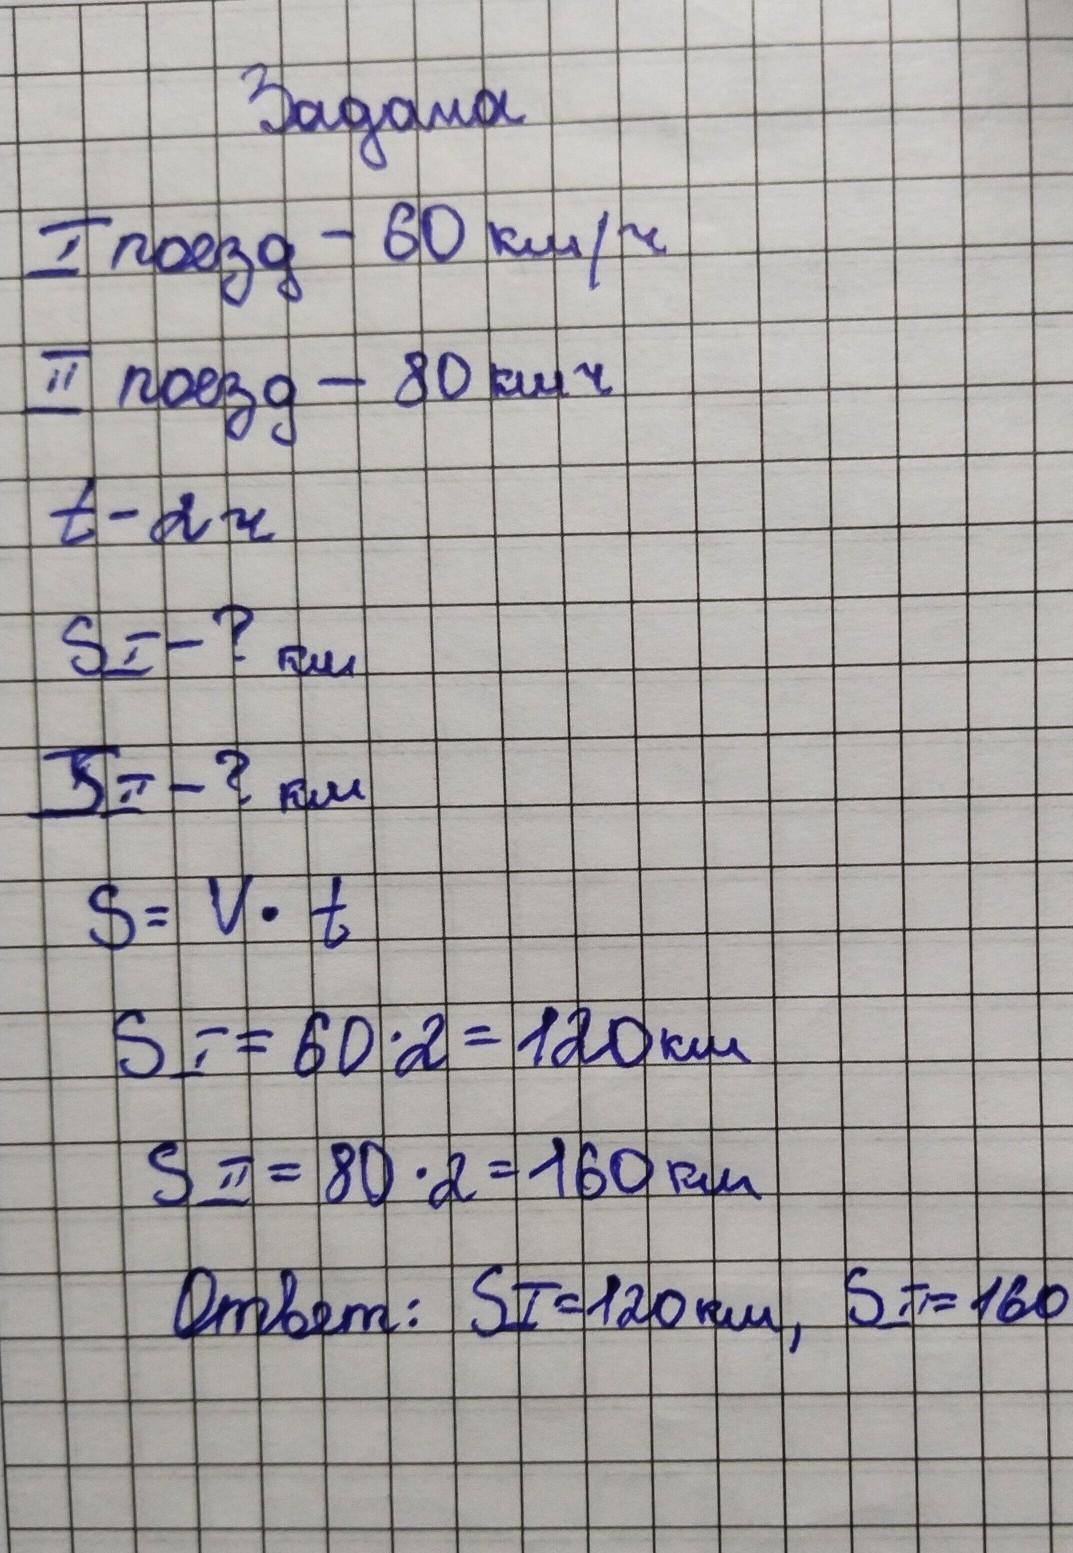 Задача
I поезд - 60 км/ч
II поезд - 80 кмч
t - 2 ч
S I - ? км
S II - ? км
S = V · t
S I = 60 · 2 = 120 км
S II = 80 · 2 = 160 км
Ответ: S I = 120 км, S II = 160